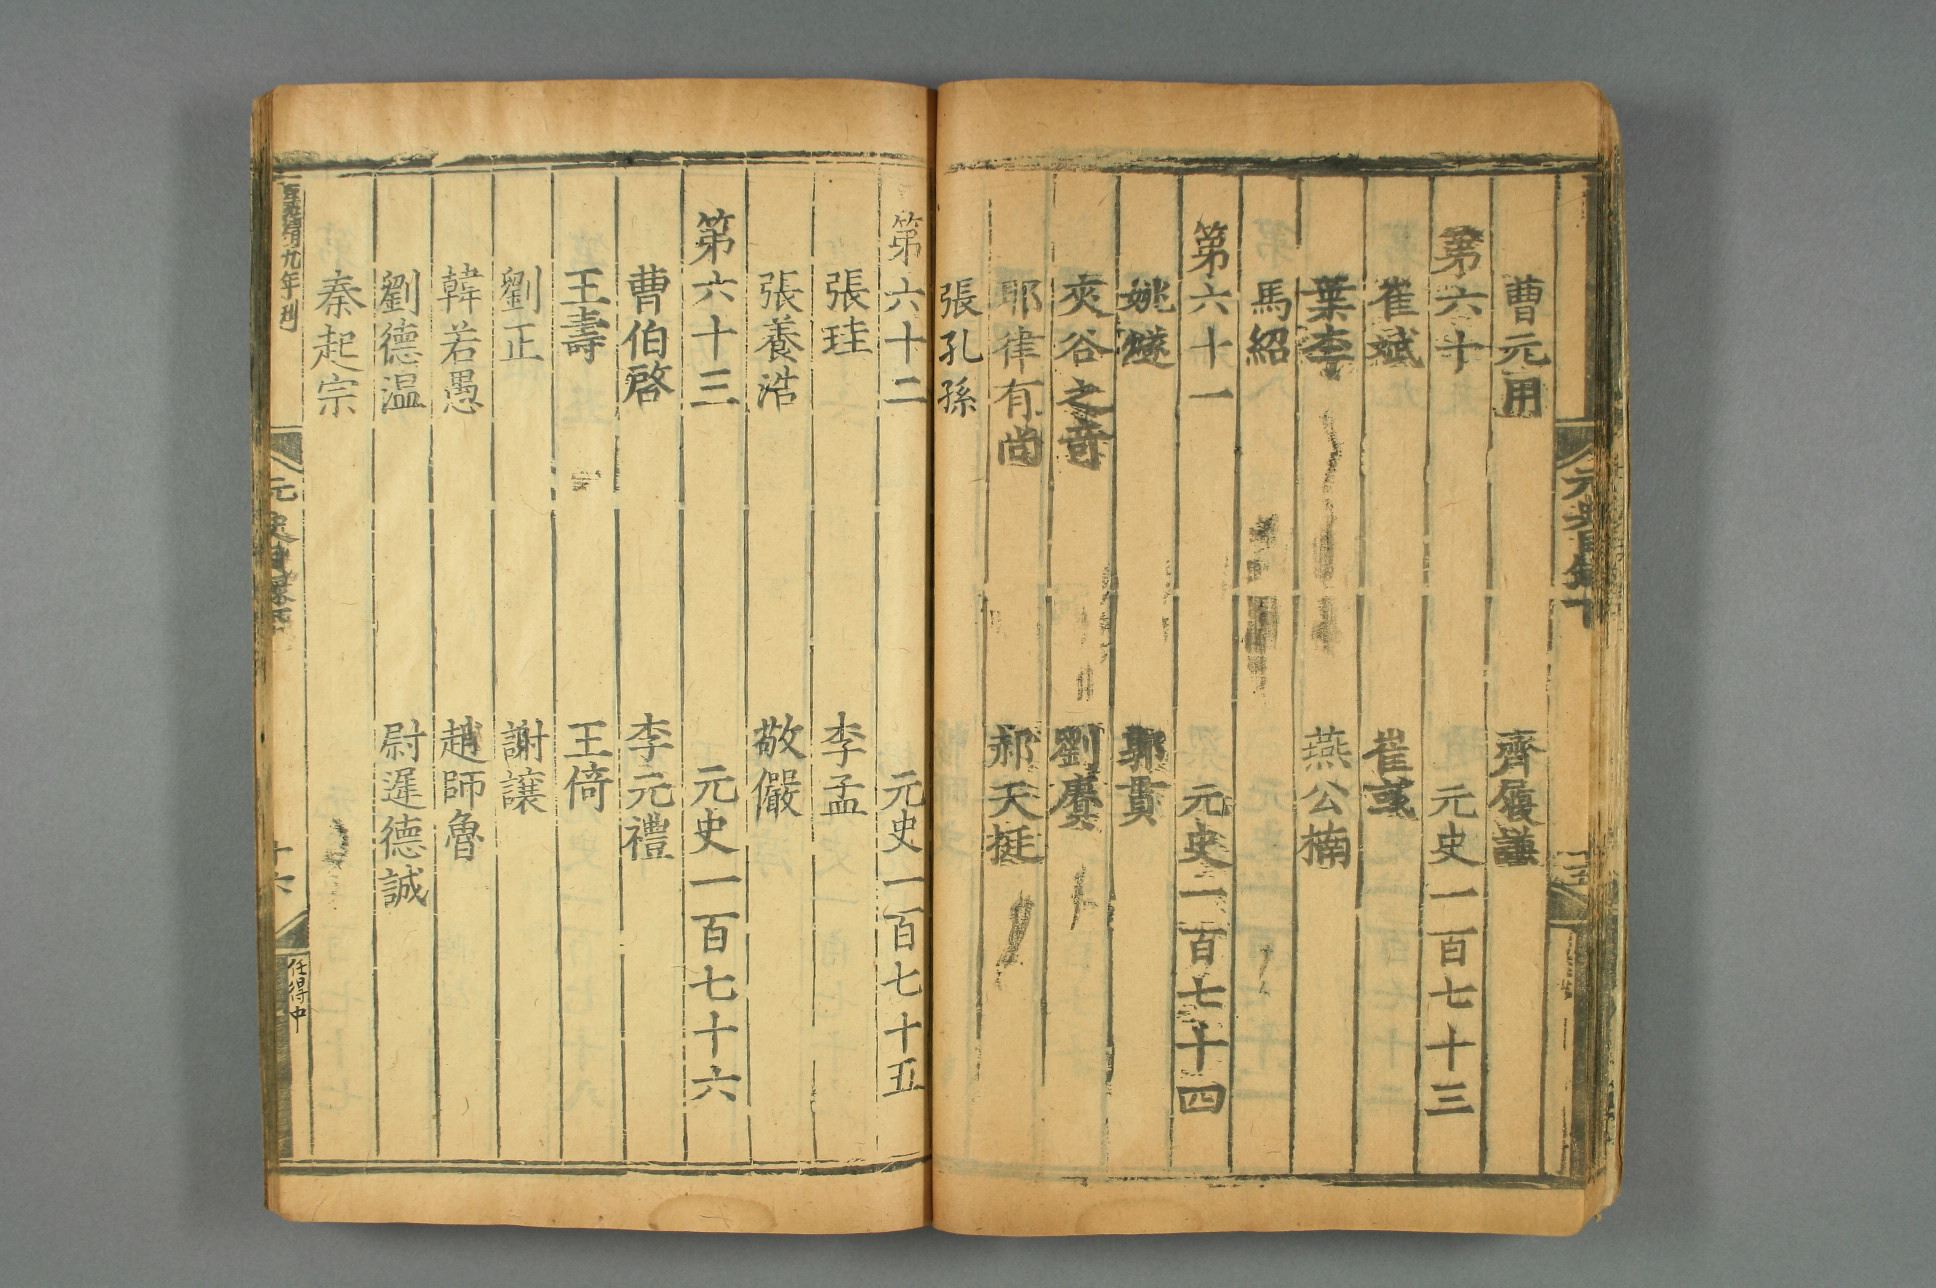 元史目錄下
十五
曹元用 齊履謙
第六十 元史一百七十三
崔斌 崔彧
葉李 燕公楠
馬紹
第六十一 元史一百七十四
姚燧 郭貫
夾谷之奇 劉賡
耶律有尚 郝天挺
張孔孫
第六十二 元史一百七十五
張珪 李孟
張養浩 敬儼
第六十三 元史一百七十六
曹伯啓 李元禮
王壽 王倚
劉正 謝讓
韓若愚 趙師魯
劉德温 尉遲德誠
秦起宗
嘉靖九年刊
元史目錄下
十六
任得中